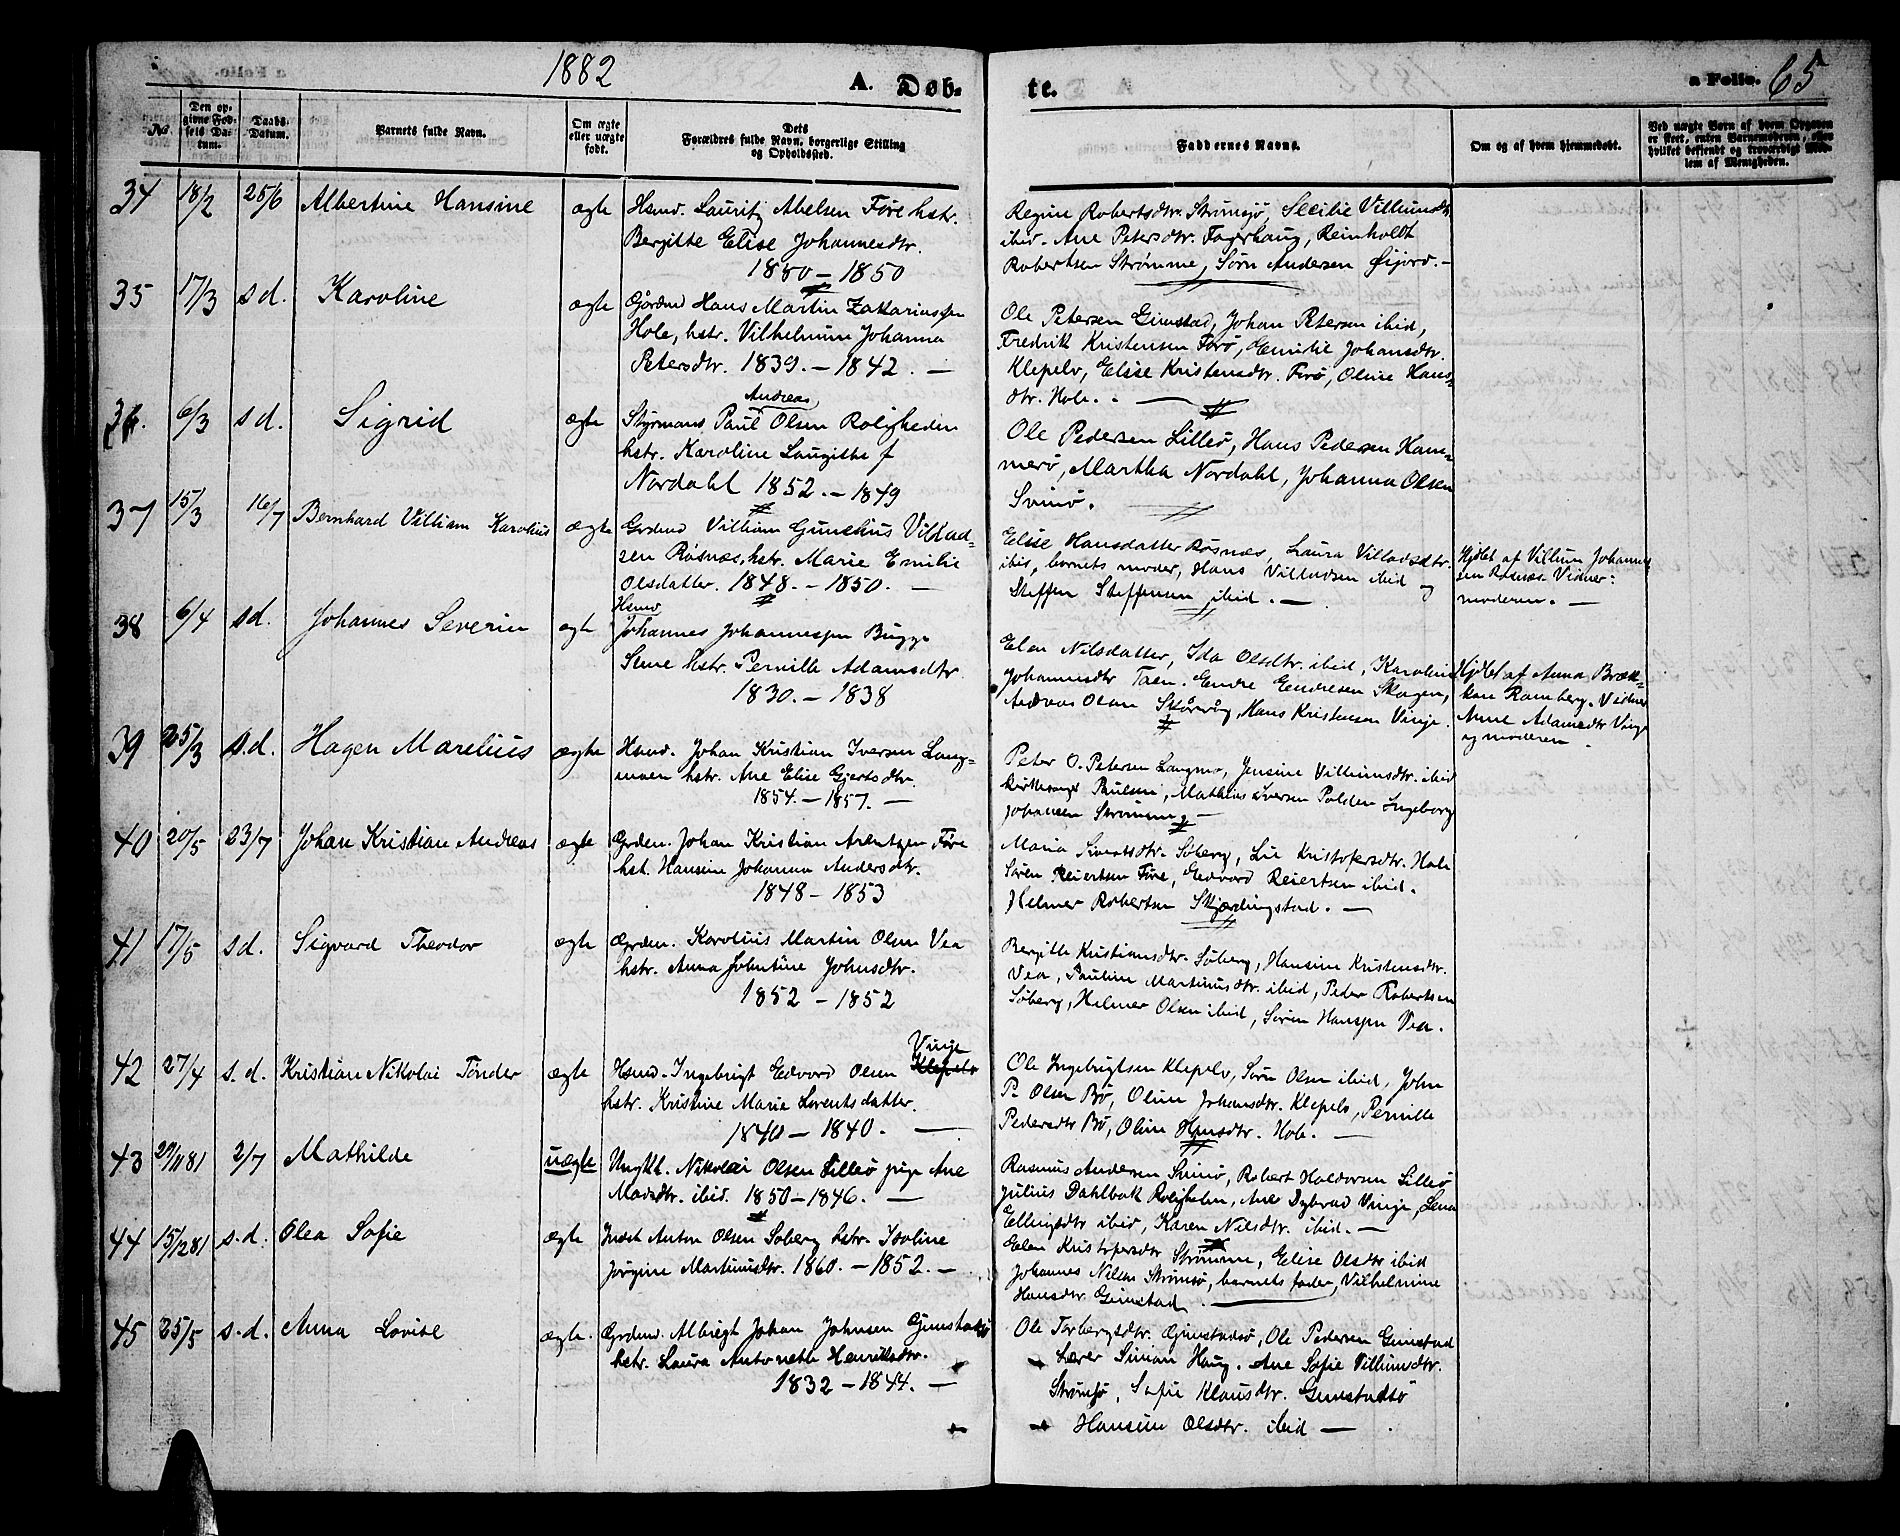 1882
A. Døb-
te.
a Folio. 65
No.
Den op-
givne Fød-
sels Da-
tum.
Daabs-
Datum.
Barnets fulde Navn.
Om ægte
eller uægte
født.
Dets
Forældres fulde Navn, borgerlige Stilling
og Opholdssted.
Faddernes Navne.
Om og af hvem hjemmedøbt.
Ved uægte Børn af hvem Opgaven
er skeet, enten Barnemoderen, eller
hvilket bekjendt og troværdigt Med-
lem af Menigheden.
34 18/2 25/6 Albertine Hansine ægte Hsmd. Lauritz Abelsen Føre hstr.
Bergitte Elise Johannesdtr.
1880 - 1850
Regine Robertsdtr. Strømsjø, Secilie Villumsdtr
ibid. Ane Petersdtr. Fagerhaug, Reinholdt
Robertsen Strømme, Sørn Andersen Øijord. -
35 17/3 sd. Karoline ægte Gjordmd Hans Martin Zakariassen
Hole, hstr. Vilhelmine Johanna
Petersdtr. 1839. - 1842. -
Ole Petersen Gimstad, Johan Petersen ibid,
Fredrik Kristensen Forø, Emilie Johansdtr.
Klepelv, Elise Kristensdtr. Forø, Oline Hans-
dtr. Hole. -
36. 6/3 sd. Sigrid ægte Styrmand Paul Andreas Olsen Roligheden
hstr. Karoline Laugitha f
Nordahl 1852. - 1849
Ole Pedersen Lilleø, Hans Pedersen Ham-
merø, Martha Nordahl, Johanna Olsen
Svinø.
37 15/3 16/7 Bernhard Villiam Karolius ægte Grdmd Villum Gunelius Villad-
sen Røsnæs, hstr. Marie Emilie
Olsdatter. 1848. - 1850. -
Elise Hansdatter Røsnæs, Laura Villadsdtr.
ibid, barnets moder, Hans Villadsen ibid og
Steffen Steffensen ibid. -
Hjdbt af Villum Johannes
sen Røsnæs. Vidner:
moderen. -
38 6/4 sd. Johannes Severin ægte Hsmd
Johannes Johannessen Bugge
Stene hstr. Pernille Adamsdtr
1830. - 1838
Elen Nilsdatter, Ida Olsdtr. ibid, Karoline
Johannesdtr Taen. Endre Endresen Skagen,
Andreas Olsen Skårvåg, Hans Kristensen Vinje.
Hjdbt af Anna Bræk-
kan Ramberg. Vidner
Anne Adamsdtr Vinje
og moderen.
39 25/3 s.d. Hagen Marelius ægte Hsmd. Johan Kristian Iversen Lang-
moen hstr. Ane Elise Gjertsdtr.
1854. - 1857. -
Peter O. Petersen Langmo, Jensine Villumsdtr. ibid
Kirkesanger Paulsen, Mathias Iversen Polden Ingeborg
Johansen Strømme -
40 20/5 23/7 Johan Kristian Andreas ægte Grdm. Johan Kristian Arentzen Føre
hst. Hansine Johanna Andersdtr.
1848 - 1853
Maria Sivertsdtr. Søberg, Lie Kristofersdtr. Hole
Søren Reiertsen Føre, Edvard Reiertsen ibid.
Helmer Robertsen Skjærdingstad. -
41 17/5 sd. Sigvard Theodor ægte Grdm. Karolius Martin Olsen Vea
hstr. Anna Johntine Johnsdtr.
1852 - 1852
Bergitte Kristiansdtr. Søberg, Hansine Kristensdtr.
Vea, Pauline Martinusdtr. ibid, Peder Robertsen
Søberg, Helmer Olsen ibid, Søren Hanssen Vea.
42 27/4 s.d. Kristian Nikolai Tønder ægte Hsmd. Ingebrigt Edvard Olsen Vinje Klepelv
hstr. Kristine Marie Lorentsdatter.
1840 - 1840. -
Ole Ingebrigtsen Klepelv, Søren Olsen ibid, John
P. Olsen Bø, Oline Johansdtr. Klepelv, Pernille
Pedersdtr Bø, Oline Hansdtr. Hole. -
43 29/11 81 2/7 Mathilde uægte Ungkl. Nikolai Olsen Lilleø pige Ane
Madsdtr. ibid. 1850 - 1846. -
Rasmus Andersen Svinø, Robert Haldorsen Lilleø
Julius Dahlbak Roligheden, Ane Dybvad Vinje, Lena
Ellingsdtr ibid, Karen Nilsdtr. ibid. -
44 15/12 81 s.d. Olea Sofie ægte Indst Anton Olsen Søberg hstr. Isoline
Jørgine Martinusdtr. 1860. - 1852. -
Elen Kristofersdtr Strømme, Elise Olsdtr ibid
Johannes Nilsen Strømsø, barnets fader, Vilhelmine
Hansdtr. Gimstad
45 25/5 s.d. Anna Lovise ægte. Grdmd. Albregt Johan Johnsen Gimstadø
hstr. Laura Antonette Henriksdtr.
1832 - 1844. -
Ole Torbergsdtr. Gimstadsø, Ole Pedersen Gimstad
Lærer Simon Haug. Ane Sofie Villumsdtr.
Strømsjø, Sofie Klausdtr. Gimstadsø
Hansine Olsdtr. ibid -